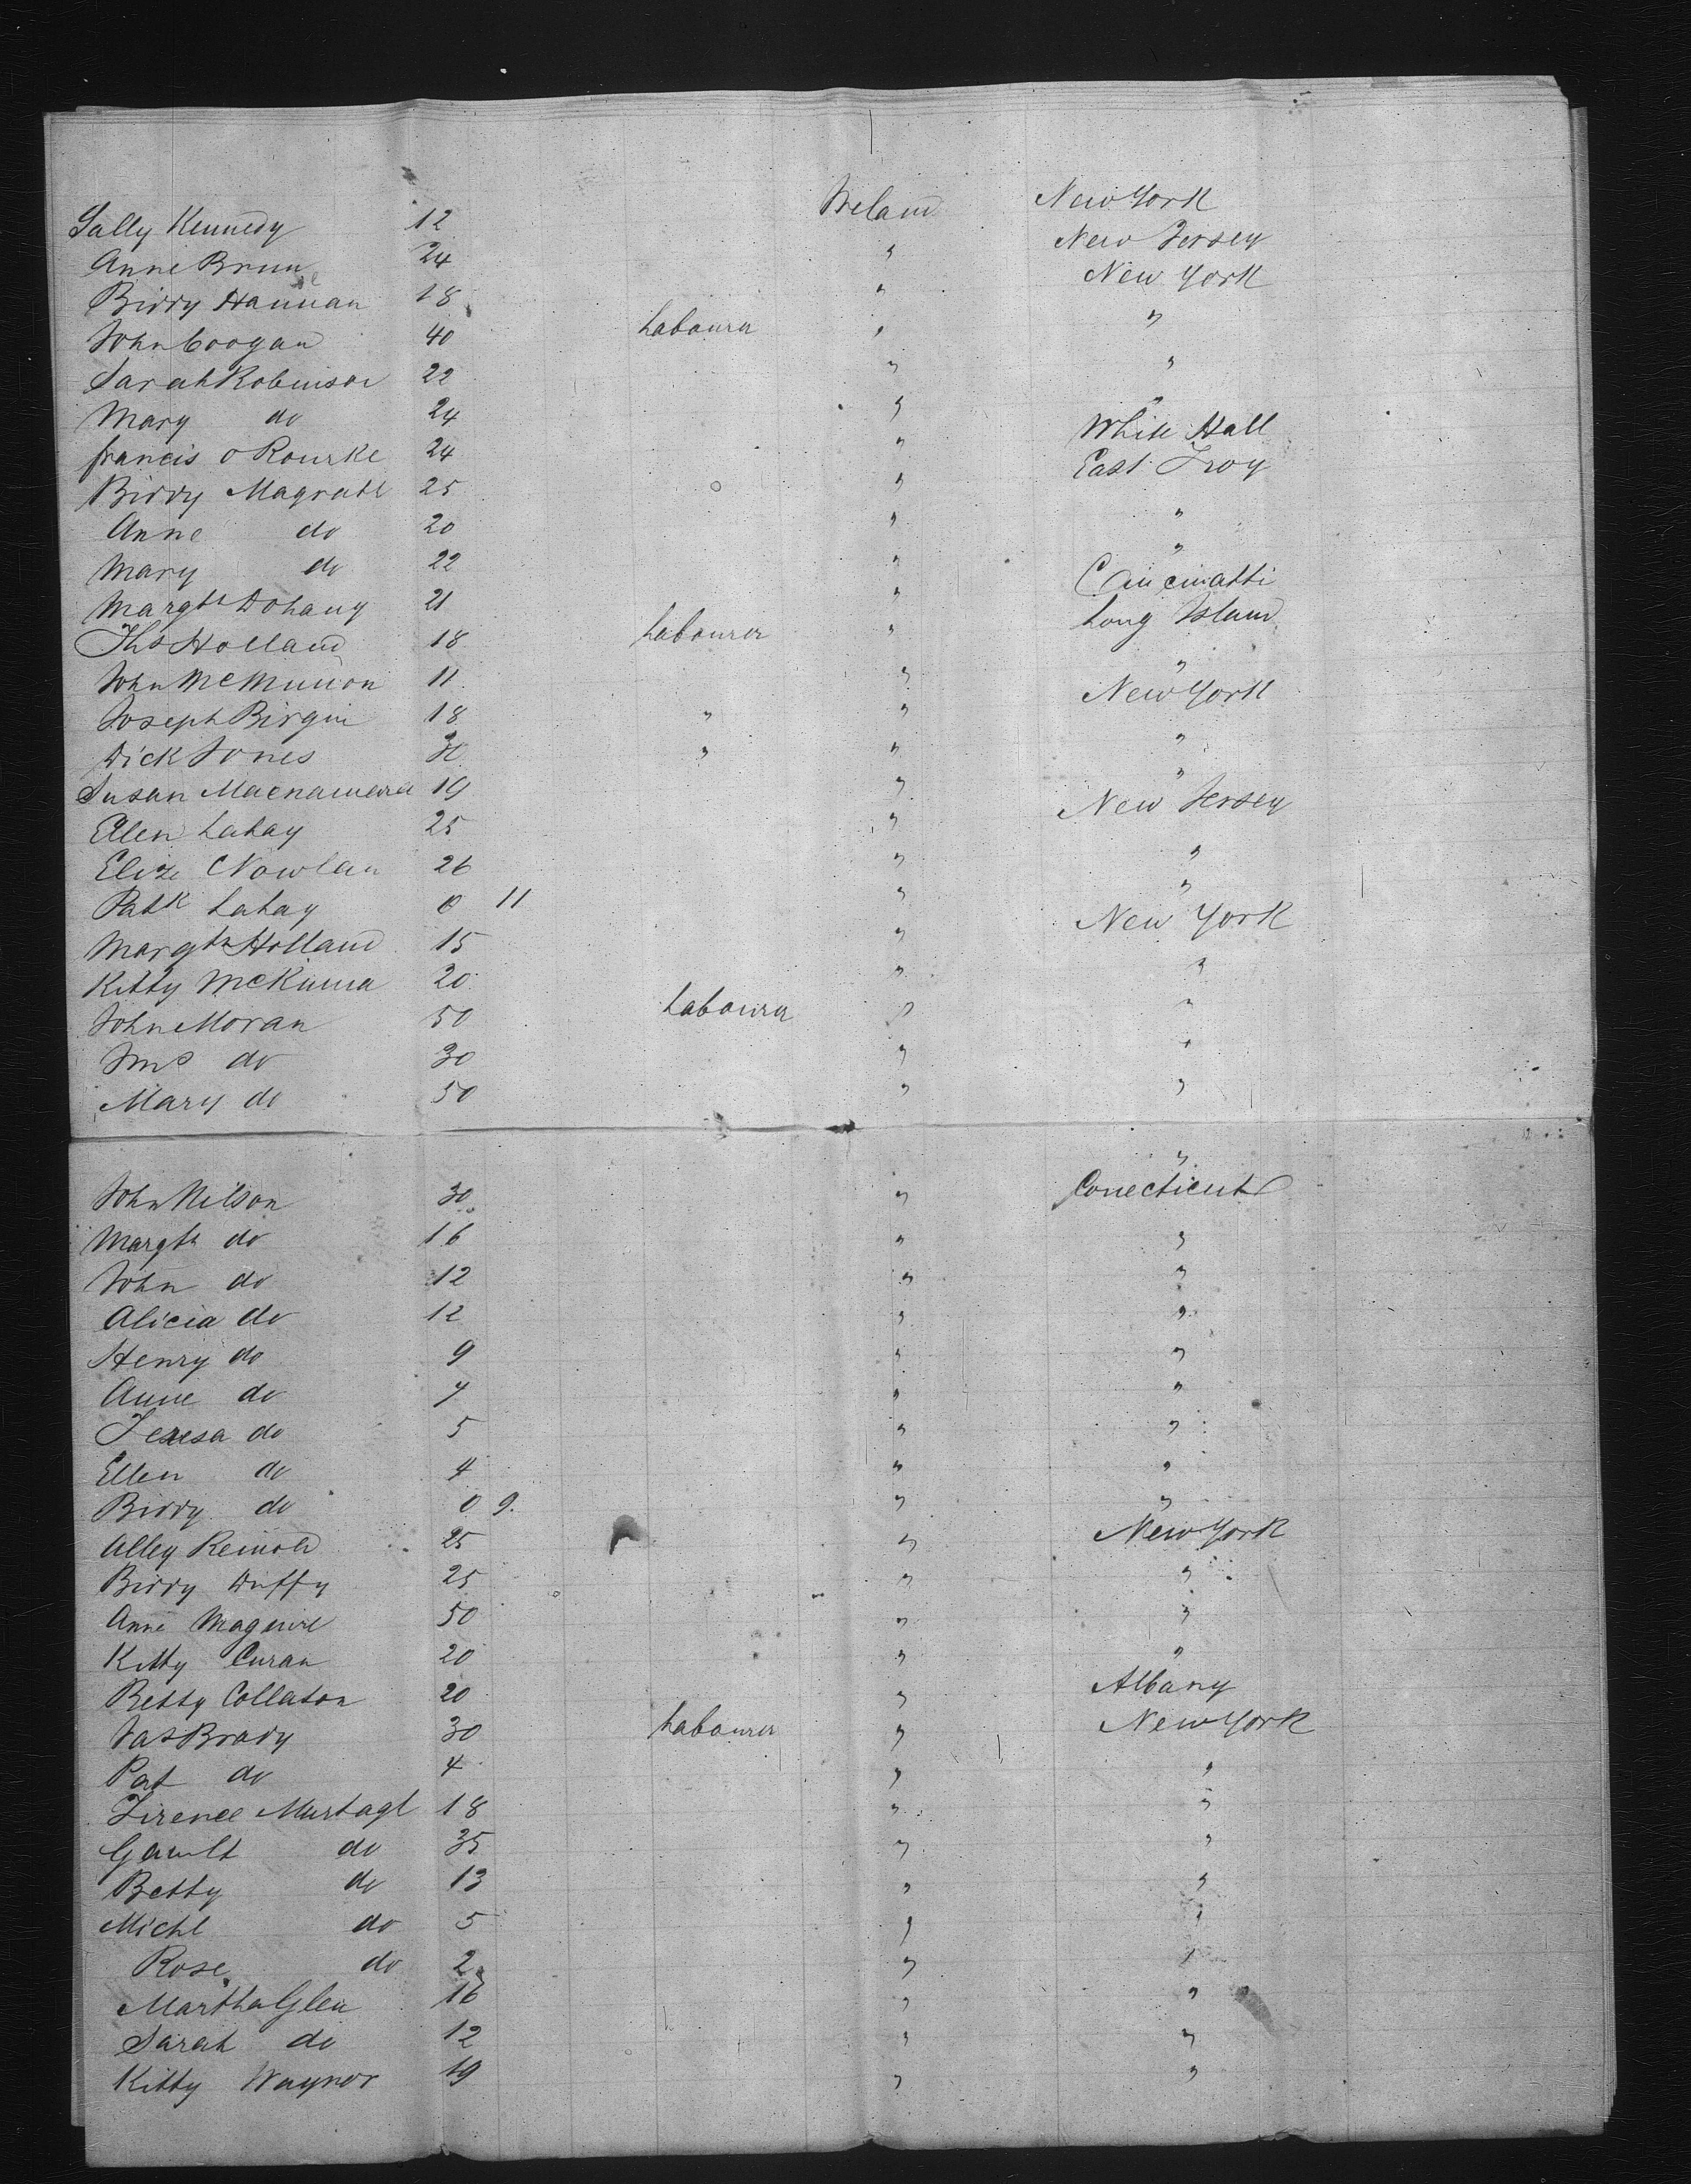 Sally Kennedy 12 Ireland New York
Anne Brun 24 " New Jersey
Biddy Hannan 18 " New York
John Coogan 40 Labourer " "
Sarah Robinson 22 " "
Mary do 24 " "
francis o Rourke 24 " White Hall
Biddy Magrath 25 " East Troy
Anne do 20 " "
Mary do 22 " "
Margt Dohany 21 " Cincinatti
Ths Holland 18 Labourer " Long Island
John McMunon 11 " "
Joseph Birgin 18 " " New York
Dick Jones 30 " " "
Susan Macnamara 19 " "
Ellen Lahay 25 " New Jersey
Eliza Nowlan 26 " "
Patk Lahay 0 11 " "
Margt Holland 15 " New York
Kitty McKinna 20 " "
John Moran 50 Labourer " "
Jms do 30 " "
Mary do 50 " "
"
John Nilson 30 " Conecticut
Margt do 16 " "
John do 12 " "
Alicia do 12 " "
Henry do 9 " "
Anne do 7 " "
Teresa do 5 " "
Ellen do 4 " "
Biddy do 0 9. " "
Alley Reinold 25 " New York
Biddy Duffy 25 " "
Anne Maguire 50 " "
Kitty Curan 20 " "
Betty Collaton 20 " Albany
Jas Brady 30 Labourer " New York
Pat do 4 " "
Tirence Murtagh 18 " "
do 35 " "
Betty do 13 " "
Michl do 5 " "
Rose do 2 " "
Martha Glen 16 " "
Sarah do 12 " "
Kitty Waynor 19 " "